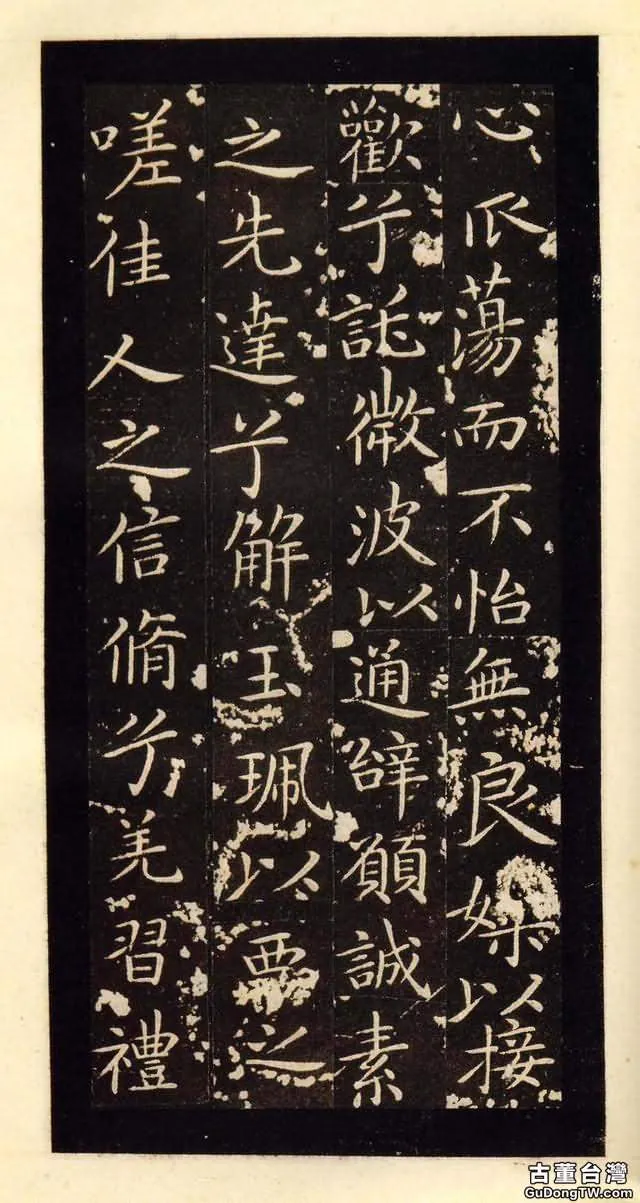 心蕩而不怡無良媒以接
歡兮託微波以通辭願誠素
之先達兮解玉珮以要之
嗟佳人之信脩兮羌習禮
古董台灣
GuDongTW.com